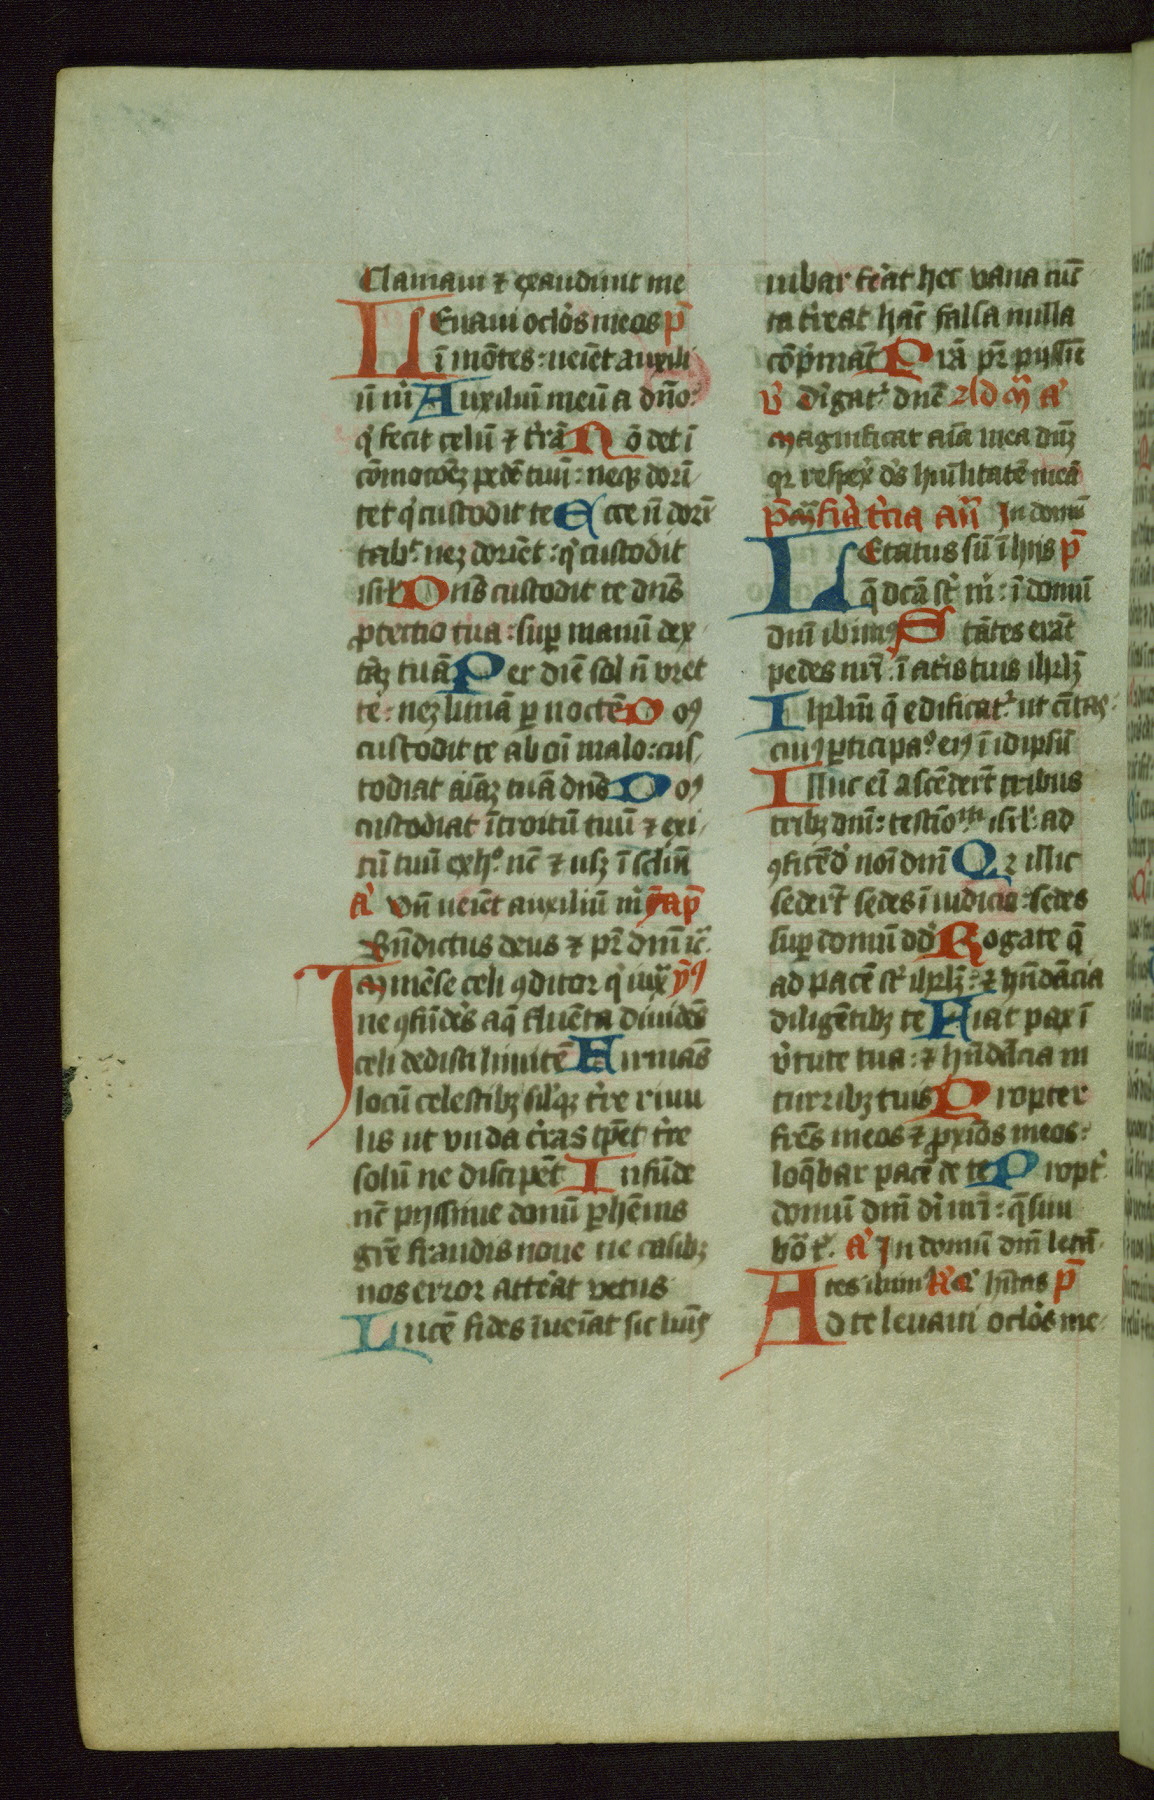 Clamaui ⁊ exaudiuit me
LEuaui oclo̓s meos p̅
ī mōtes : ueiēt auxili
ū m̓ Auxiliuȝ meū a dn̄o :
q̓ fecit celū ⁊ t̓rā Nō det ī
cōmotōeȝ pedē tuū : neqȝ dori
tet q̓ custodit te Ecce n̄ dorī
tabᵗ neȝ doriēt : q̓ custodit
isrl̓ Dn̄s custodit te dn̄s
ꝓtectio tua : suꝑ manū dex
t̓aȝ tuā Per diē sol n̄ vret
te : neȝ lunā ꝑ noctē Dn̄s
custodit te ab oī malo : cus
todiat aīaȝ tuā dn̄s Dn̄s
custodiat ītroitū tuū ⁊ exi
tū tuū ex hͦ nc̄ ⁊ usȝ ī sclm̄
A̓ Vn̄ ueiēt auxiliū m̓ cap̅
Bn̄dictus deus ⁊ pr̄ dn̄i
Immēse celi ꝯditor q̓ mix ym̄ꝰ
ne ꝯfūdēs aq̄ fluēta diuidēs
celi dedisti limitē Firmās
locū celestibȝ sil̓qȝ t̓re riuu
lis ut vnda t̓ras tꝑēt t̓re
solū ne discipēt Infūde
nc̄ pijssime donū ꝑhēnis
gr̄e fraudis noue ne casibȝ
nos error atte̓at vetus
Lucē fides īueiāt sic lumīs
iubar fe̓at hec vana cūc
ta t̓reat hāc falsa nulla
cōp̓māt Prā pr̄ pijssīe
V̓ Di̓gatᷣ dn̄e Ad m̄ a̓
Magnificat aīa mea dnȝ
qꝛ respex̓ ds̓ hūilitatē meā
In domū
LEtatus sū ī hijs p̅
q̄ dc̄a st̓ m̓ : ī domū
dnī ibimꝰ Stātes erāt
pedes nr̄i : ī at̓is tuis ihrlȝ
Ihrlm̄ q̄ edificatᷣ ut cītas :
cuiꝰ ꝑticipaͦ eiꝰ ī idipsū
Illuc ei̅ ascēder̄t tribus
tribȝ dnī : testīoᵐ isrl̓ : ad
ꝯfitēd̓ noī dnī Qꝛ illic
seder̄t sedes ī iudicio : sedes
suꝑ domū dd̓ Rogate q̄
ad pacē st̓ ihrlȝ : ⁊ hn̄dācia
diligētibȝ te Fiat pax ī
v̓tute tua : ⁊ hn̄dācia in
turribȝ tuis Propter
frēs meos ⁊ ꝓxīos meos :
loq̄bar pacē de te Propt̓
domū dnī di̓ nr̄i : q̄siui
bōa t̓ . A̓ In domū dnī letā
tes ibimꝰ p̅
Ad te leuaui oclo̓s me